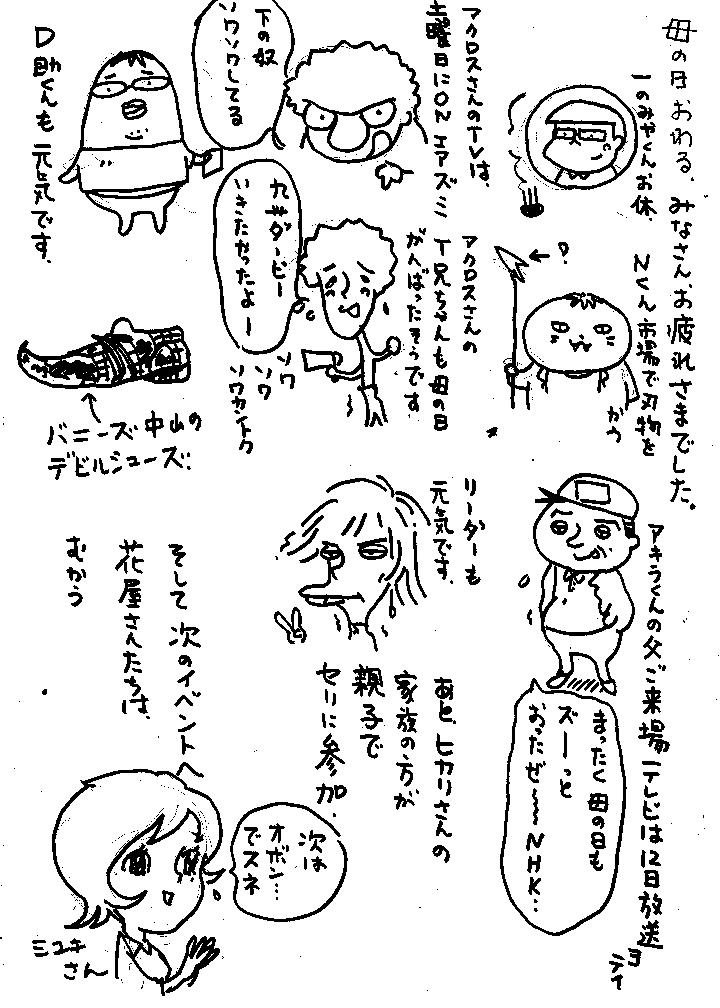 母の日おわる、みなさん、お疲れさまでした。
一のみやくんお休、
Nくん市場で刃物を
かう
?
アクロスさんのTVは、
土曜日にON エアズミ
下の奴
ソワソワしてる
D助くんも元気です。
アクロスさんの
T兄ちゃんも母の日
がんばったそうです。
九州ダービー
いきたかったよー
ソワ
ソワ
バニーズ中山の
デビルシューズ.
アキラくんの父ご来場 テレビは12日放送
ヨテイ
まったく母の日も
ズーっと
おったぜ〜〜NHK…
リーダーも
元気です。
あと、ヒカリさんの
家族の方が
親子で
セリに参加.
そして次のイベントへ
花屋さんたちは、
むかう
次は
オボン…
でスネ
ミユキ
さん